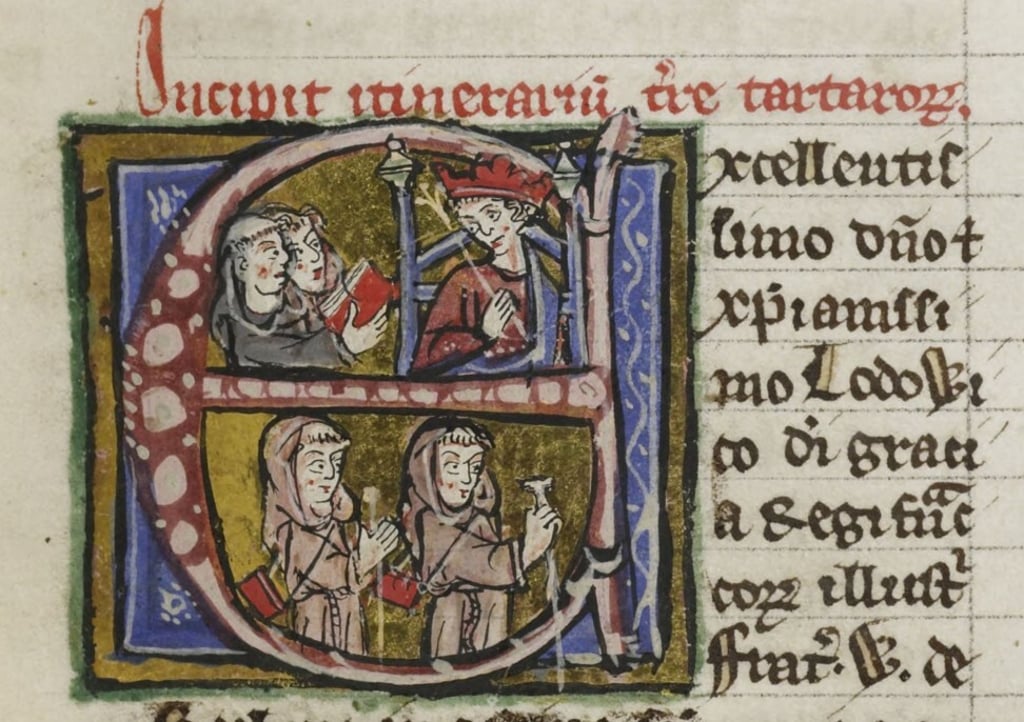 Incipit itinerariū t̄re tartaroꝝ.
Excellentis
simo dn̄o ⁊
xp̄ianissi
mo Lodowi
co di graci
a Regi franc
coꝝ illust
ffrat̄. W. de